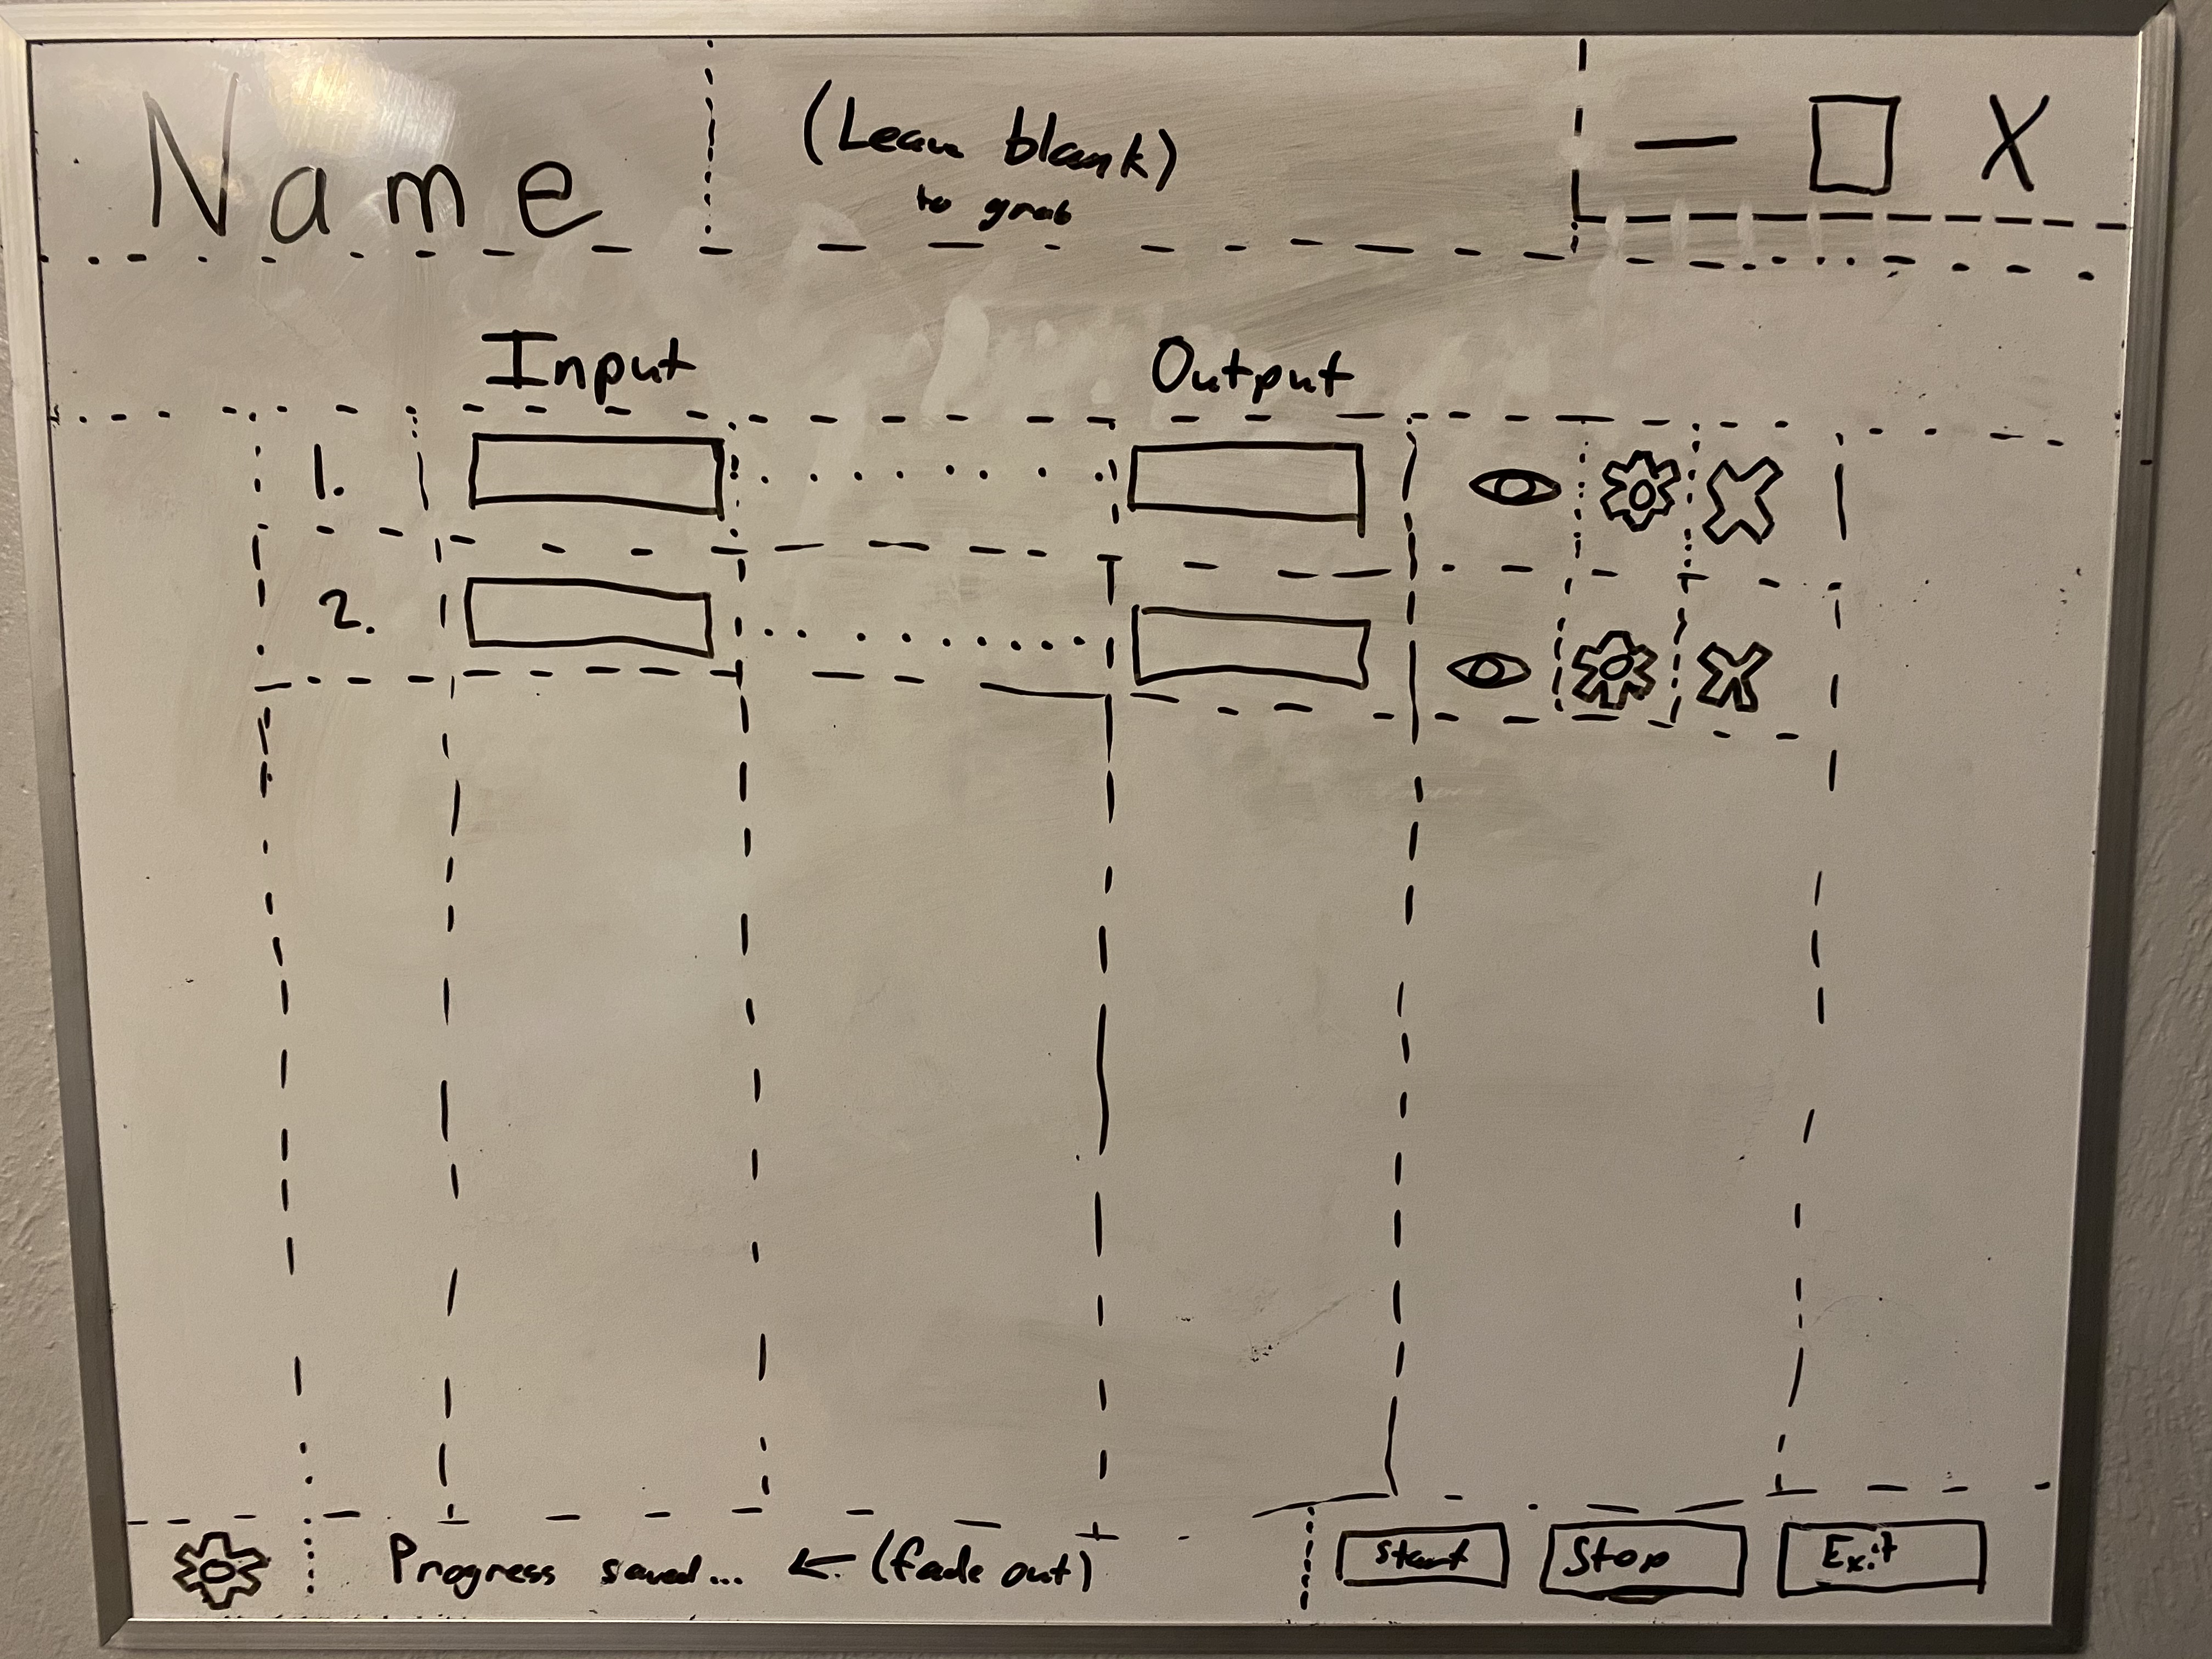 Name
(Leave blank)
to grab
X
Input Output
1.
2.
Progress saved... ← (fade out)
Start Stop Exit